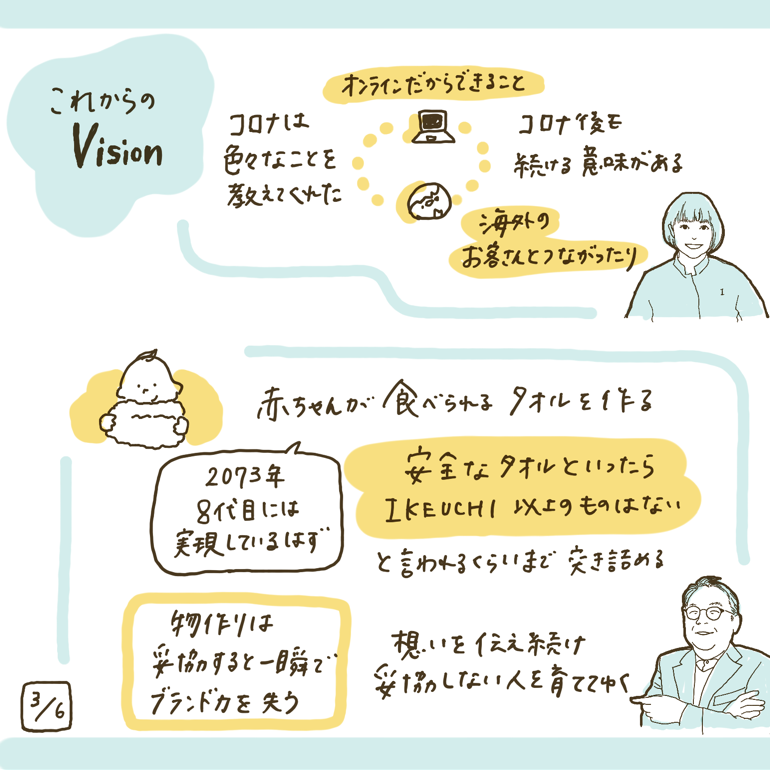 これからの
Vision
オンラインだからできること
コロナは
色々なことを
教えてくれた
コロナ後も
続ける意味がある
海外の
お客さんとつながったり
1
赤ちゃんが食べられるタオルを作る
2073年
8代目には
実現しているはず
安全なタオルといったら
IKEUCHI以上のものはない
と言われるくらいまで突き詰める
物作りは
妥協すると一瞬で
ブランド力を失う
想いを伝え続け
妥協しない人を育ててゆく
3/6